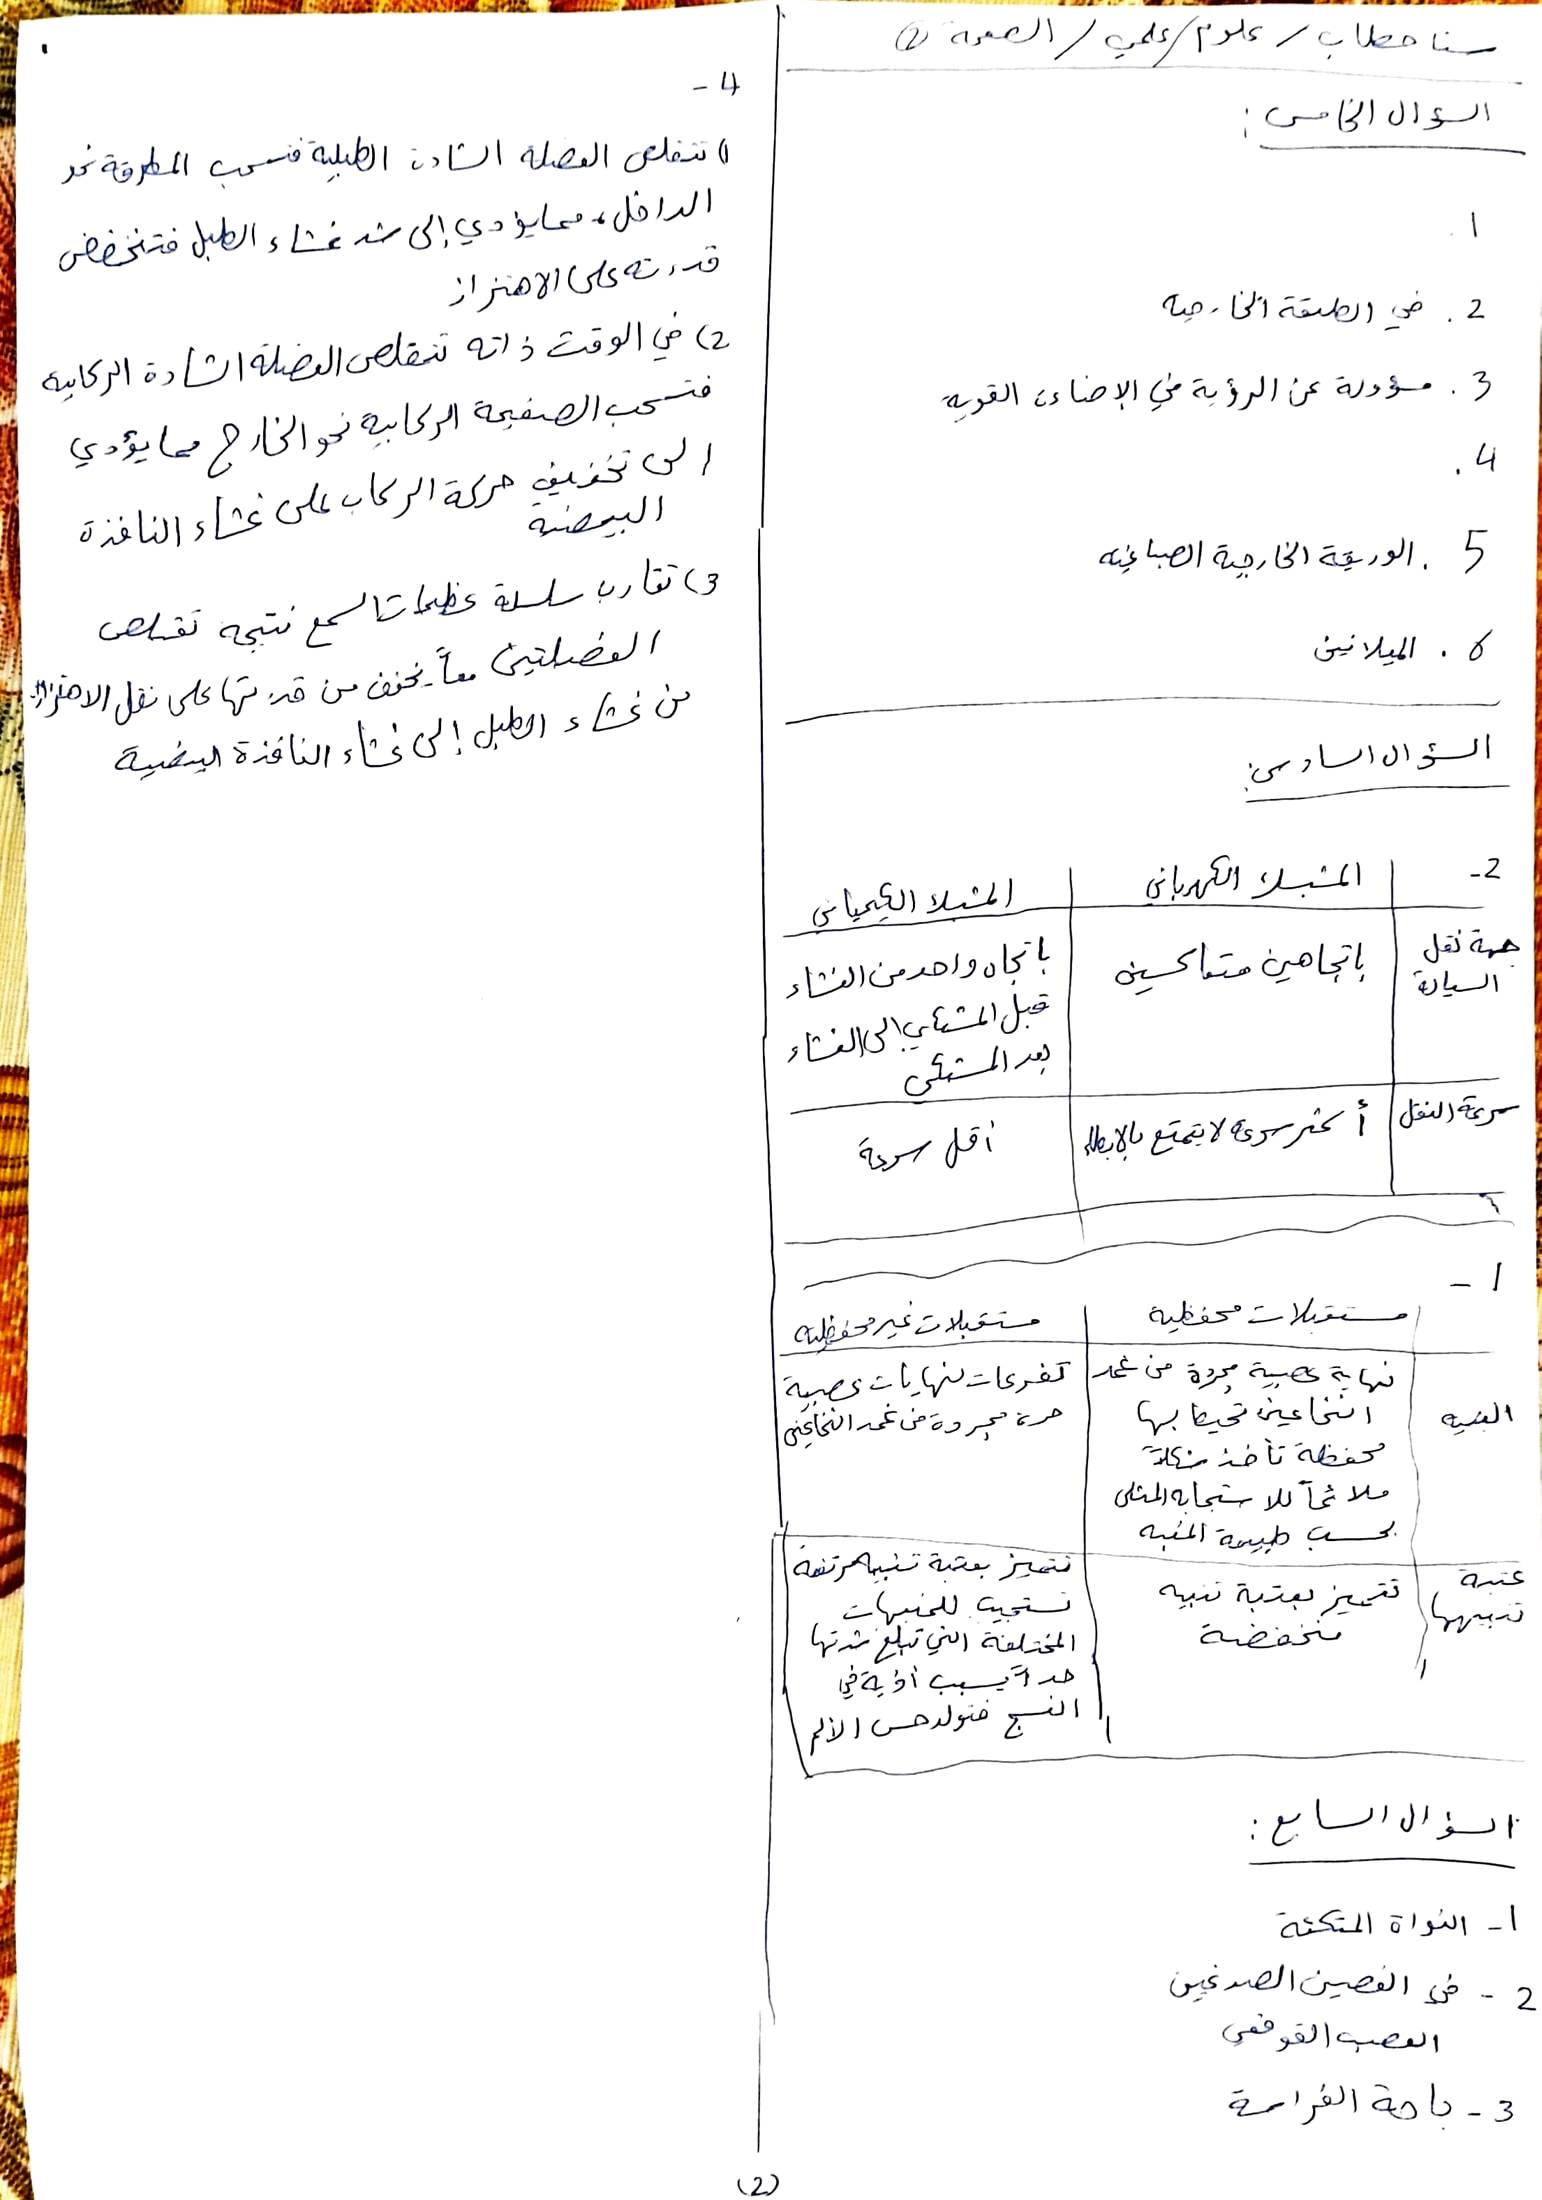 سنا حطاب / علوم / علمي / الصفحة 2
السؤال الخامس:
1.
2. في الطبقة الخارجية
3. مسؤولة عن الرؤية في الإضاءة القوية
4.
5. الوريقة الخارجية الصباغية
6. الميلانين
السؤال السادس:
2-
المشبك الكهربائي | المشبك الكيميائي
جهة نقل السيالة | باتجاهين متعاكسين | باتجاه واحد من الغشاء
قبل المشبكي إلى الغشاء
بعد المشبكي
سرعة النقل | أكثر سرعة لا يتمتع بالإبطاء | أقل سرعة
1-
مستقبلات محفظية | مستقبلات غير محفظية
البنية | نهاية عصبية مجردة من غمد | تفرعات لنهايات عصبية
النخاعين تحيط بها | حرة مجردة من غمد النخاعين
محفظة تأخذ شكلاً
ملائماً للاستجابة المثلى
بحسب طبيعة المنبه
عتبة تنبيهها | تتميز بعتبة تنبيه | تتميز بعتبة تنبيه مرتفعة
منخفضة | تستجيب للمنبهات
المختلفة التي تبلغ شدتها
حداً يسبب أذية في
النسج فتولد حس الألم
السؤال السابع:
1- النواة المتكئة
2- في الفصين الصدغيين
العصب القوقعي
3- باحة الفراسة
4-
1) تتقلص العضلة الشادة الطبلية فتسحب المطرقة نحو
الداخل، مما يؤدي إلى شد غشاء الطبل فتنخفض
قدرته على الاهتزاز
2) في الوقت ذاته تتقلص العضلة الشادة الركابية
فتسحب الصفيحة الركابية نحو الخارج مما يؤدي
إلى تخفيف حركة الركاب على غشاء النافذة
البيضية
3) تقارب سلسلة عظيمات السمع نتيجة تقلص
العضلتين معاً يخفف من قدرتها على نقل الاهتزاز
من غشاء الطبل إلى غشاء النافذة البيضية
(2)